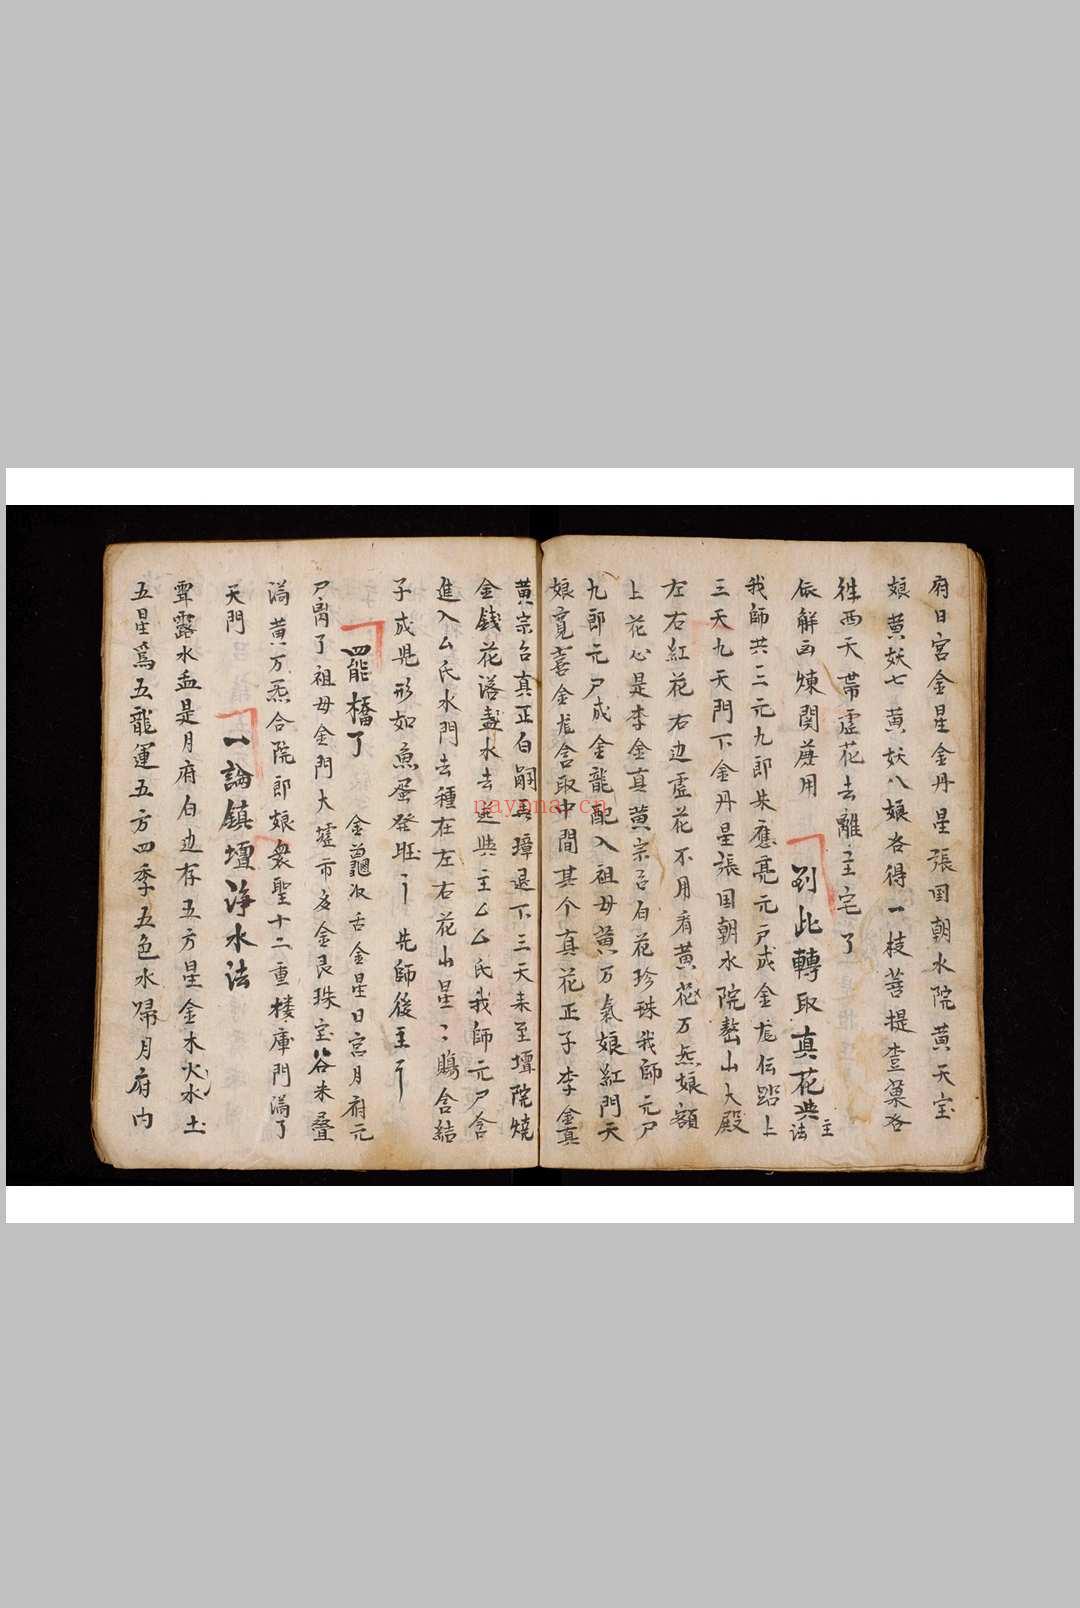 府日宮金星金丹星張国朝水院黄天宝
娘黄妖七黄妖八娘各得一枝菩提各
西天帯虚花去離主宅了
依解函煉関用 到此轉取真花共主法
我師共三元九郎朱應亮元尸成金龙伝踏上
三天九天門下金丹星張国朝水院山大殿
左右紅花右边虚花不用看黄花万炁娘額
上花心是李金真黄宗台白花珍珠我師元尸
九郎元尸成金龍配入祖母黄万氣娘紅門天
娘寛喜金龙含取中間其个真花正子李金真
黄宗台真正白嗣真璋退下三天来至壇院燒
金錢花落盡水去送與主厶厶氏我師元尸含
進入厶氏水門去種在左右花山星々賜含結
子成児形如魚蛋發 先師後主
罡橋了 金舌金星日宮月府元
尸了祖母金門大墟市金艮珠宝谷米叠
満黄万炁合院郎娘衆聖十二重楼庫門満了
天門 一論鎮壇浄水法
露水盂是月府白边存五方星金木火水土
五星為五龍運五方四季五色水歸月府内
nayona.cn